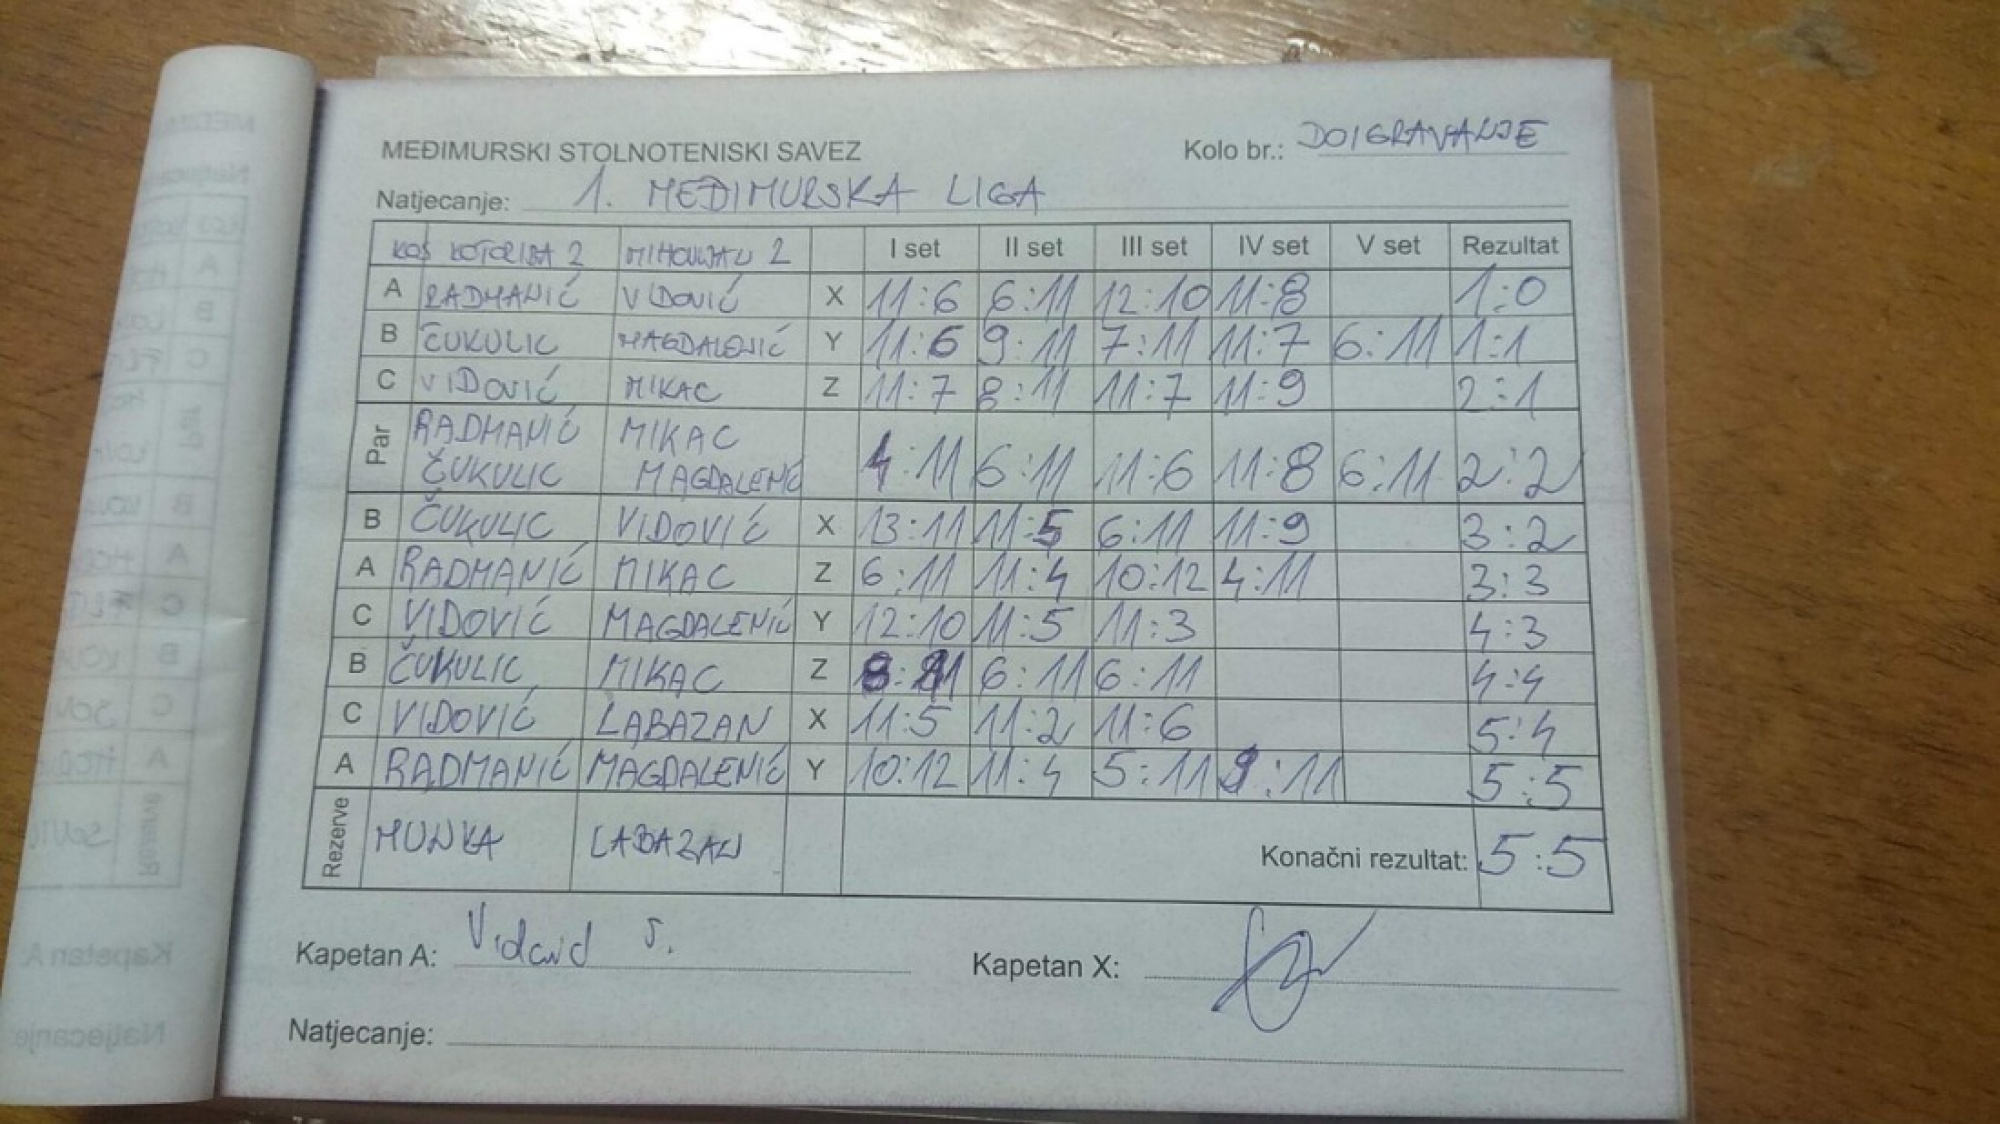 MEĐIMURSKI STOLNOTENISKI SAVEZ Kolo br.: DOIGRAVANJE
Natjecanje: 1. MEĐIMURSKA LIGA
KOŠ KOTORIBA 2 MIHOVLJAN 2 I set II set III set IV set V set Rezultat
A RADMANIĆ VIDOVIĆ X 11:6 6:11 12:10 11:8 1:0
B ČUKULIC MAGDALENIĆ Y 11:6 9:11 7:11 11:7 6:11 1:1
C VIDOVIĆ MIKAC Z 11:7 8:11 11:7 11:9 2:1
Par RADMANIĆ MIKAC
ČUKULIC MAGDALENIĆ 4:11 6:11 11:6 11:8 6:11 2:2
B ČUKULIC VIDOVIĆ X 13:11 11:5 6:11 11:9 3:2
A RADMANIĆ MIKAC Z 6:11 11:4 10:12 4:11 3:3
C VIDOVIĆ MAGDALENIĆ Y 12:10 11:5 11:3 4:3
B ČUKULIC MIKAC Z 8:11 6:11 6:11 4:4
C VIDOVIĆ LABAZAN X 11:5 11:2 11:6 5:4
A RADMANIĆ MAGDALENIĆ Y 10:12 11:4 5:11 9:11 5:5
Rezerve MUNKA LABAZAN Konačni rezultat: 5:5
Kapetan A: Kapetan X:
Natjecanje: